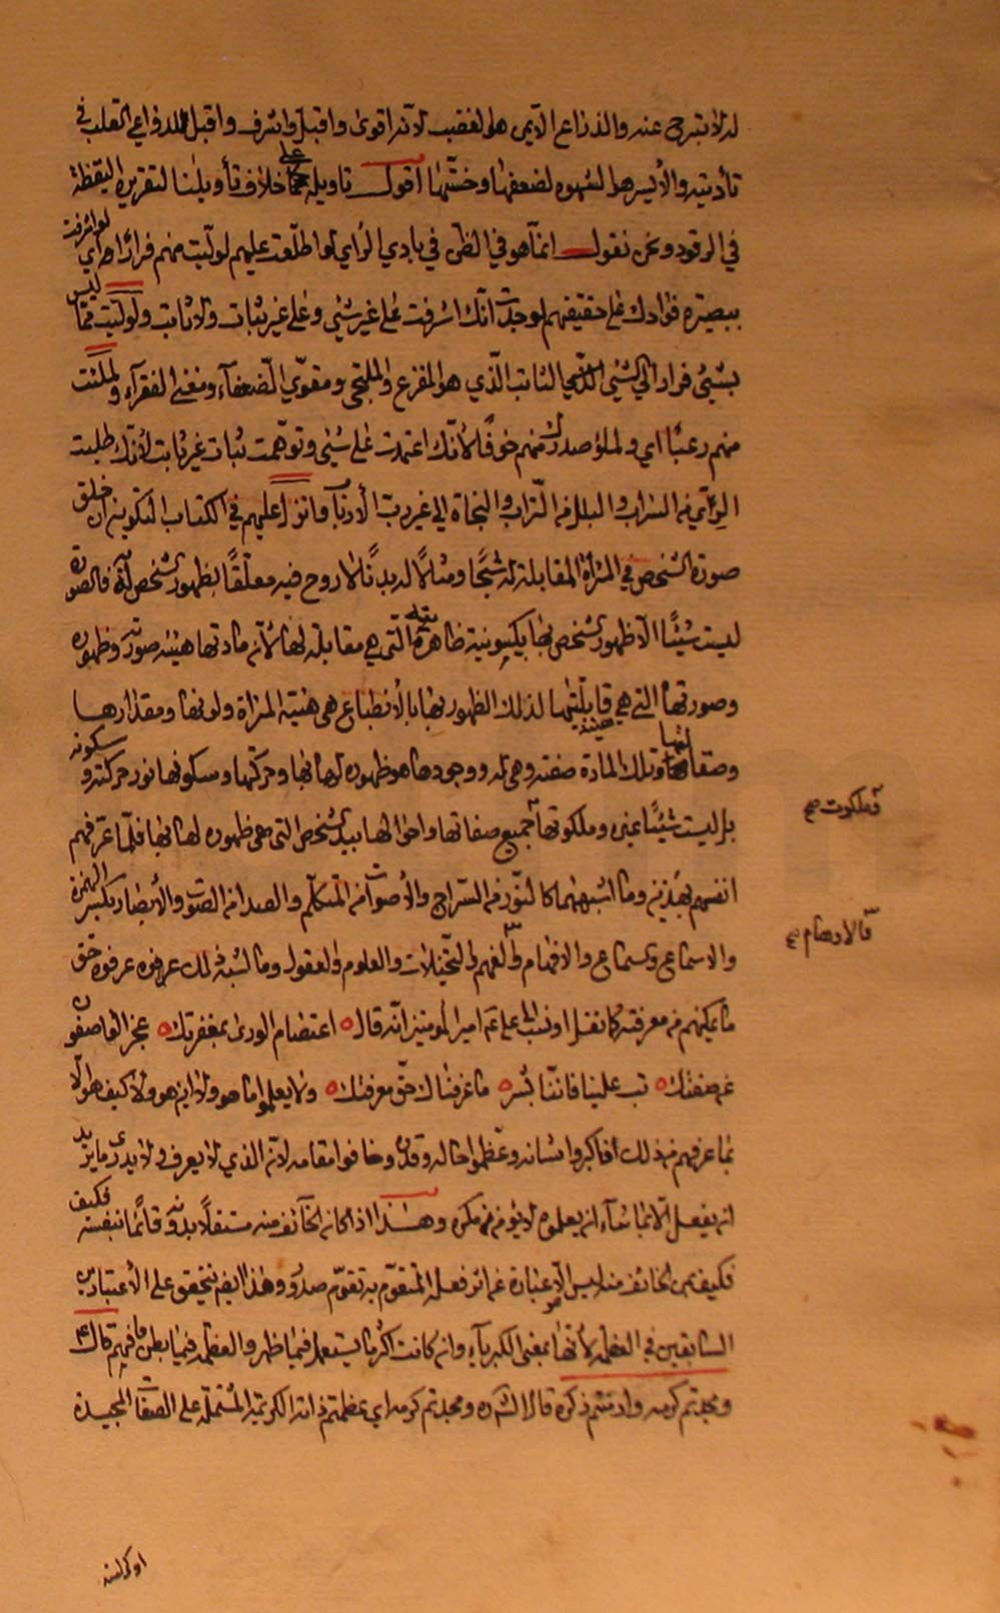 له لا تبرح عنه والذراع الايمن هو الغضب لانه اقوى واقبل واشرف واقبل للدواعي القلب في
تأديته والأيسر هو الشهوه لضعفها وخسّتها اقول تاويله على خلاف تأويلنا لتقريره اليقظة
في الرقود ونحن نقول انما هو في الظن في بادي الرأي لو اطّلعت عليهم لولّيت منهم فرارا اي لو اشرفت
ببصيرة فؤادك على حقيقتهم لوجدت انّك اشرفت على غير شيء وعلى غير ثبات ولا ثابت ولولّيت عمّا ليس
بشيء فرارا الي الشيء الثابت الّذي هو المفزع والملتجى ومقوّي الضعفآء ومغني الفقرآء ولملئت
منهم رعبًا اي ولملؤ صدرك منهم خوفًا لأنّك اعتمدت على شيء وتوهّمت ثبات غير ثابت لأنّك طلبت
الريّ من السراب والبلل من التراب والنجاة الي غير ربّ الأرباب وانزل عليهم في الكتاب التكويني ان خلق
صورة الشخص في المرآة المقابلة له شبحًا ومثالًا له بدنًا لا روح فيه معلّقًا بظهور الشخص لانّه فالصورة
ليست شيئًا الّا ظهور الشخص بها بكينونية ظاهريّته الّتي هي مقابلته لها لأنّه مادتها هيئة صورته وظهوره
وصورتها التي هي قابليّتها لذلك الظهور بها بالأنطباع هي هيئة المرآة ولونها ومقدارها
وصقالتها وتلك المادة صفته وهي له ووجودها هو ظهوره لها بها وحركتها وسكونها نور حركته وسكونه
بل ليست شيئًا غيره وملكوتها جميع صفاتها واحوالها بيد الشخص التي هي ظهوره لها بها فلمّا عرّفهم
فملكوت صح
انفسهم بهذين وما اشبههما كالنّور من السراج والأصوات من المتكلّم والصدا من الصوت والأبصار بكسر الهمزة
والاسماع والاستماع والافهام والفهم والتخيّلات والعلوم والعقول وما اشبه ذلك عرفوه عرفوه حق
فالاوهام صح
ما يمكنهم من معرفته كما نقل او نسب الى علي عم امير المؤمنين انّه قال ه اعتصام الورى بمغفرتك ه عجز الواصفون
عن صفتك ه تب علينا فاننا بشر ه ما عرفناك حقّ معرفتك ه ولم يعلموا ما هو ولا اين هو ولا كيف هو الّا
بما عرفهم من ذلك فاكبروا شانه وعظّموا حاله وقدره وخافوا مقامه لانه الذي لا يعرف ولا يدرى ما يريد
ان يفعل الّا بما شآء ان يعلموه لا يؤمن مكره وهذا اذا كان الخآئف منه مستقلًا بدونه قائمًا بنفسه فكيف
فكيف بمن الخائف منه ليس الّا عبارة عن اثر فعله المتقوّم به تقوّم صدور وهذا ايضا يتحقق على الأعتبارين
السّابقين في العظمة لأنّها بمعنى الكبريآء وان كانت اكثر ما يستعمل فيما ظهر والعظمة فيما بطن فافهم قال ع
ومجدتم كرمه وادمنتم ذكره قال الش ره ومجدتم كرمه اي عظمتم ذاته الكريمة المشتملة على الصفات المجيدة
او كرامته